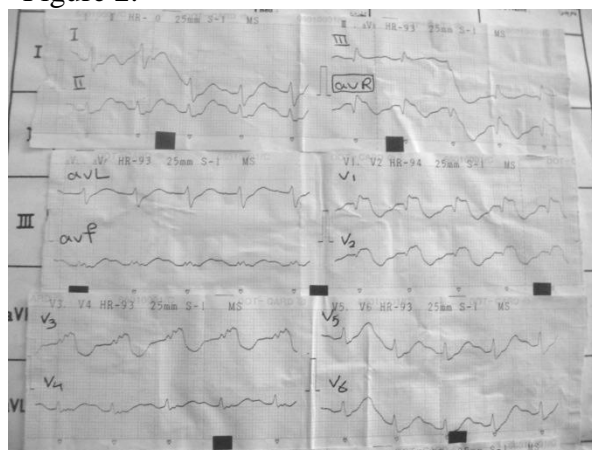 Figure 2.
HR- 0 25mm S-1 MS
I
II
HR-93 25mm S-1 MS
III
avR
HR-93 25mm S-1 MS
avL
avf
V1. V2 HR-94 25mm S-1 MS
V1
V2
V3. V4 HR-93 25mm S-1 MS
V3
V4
V5. V6 HR-93 25mm S-1 MS
V5
V6
I
III
aVL